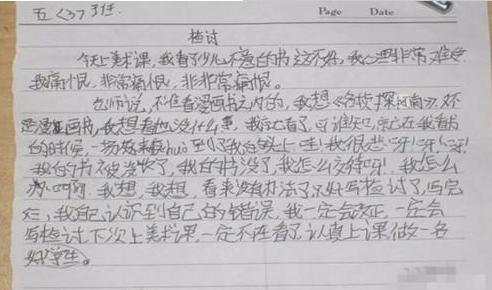 五<3>班.
Page Date
检讨
今天上美术课,我看了少儿不爱的书这不好,我心里非常难受
我痛恨,非常痛恨,非非常痛恨。
老师说,不准看漫画书之内的,我想《名侦探柯南》又不
是漫画书,我想看也没什么事,我就看了,可谁知,就在我看书
的时候,一场好来横hui到了我的头上,哇!我很悲呀!呀!呀!
我的书不被没收了,我的书没了,我怎么交待呀!我怎么
办啊啊,我想,我想,看来没有办法了,只好写检讨了,写完
后,我自己认识到自己的错误,我一定会改正,一定会
写检讨,下次上美术课,一定不在看了,认真上课,做一名
好学生。